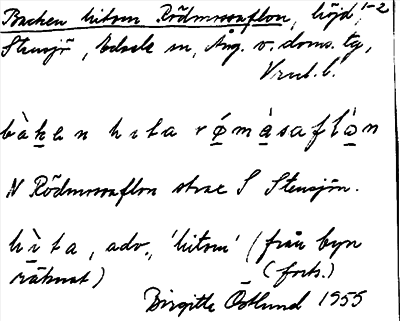 Backen hitom Rödmossaflon, höjd, 1-2
Stensjö, Edsele sn, Ång. v. doms. tg,
bàken hıta rø̀màsaflòn
N Rödmossaflon strax S Stensjön.
hìta, adv., 'hitom' (från byn
räknat) (forts.)
Birgitte Östlund 1955